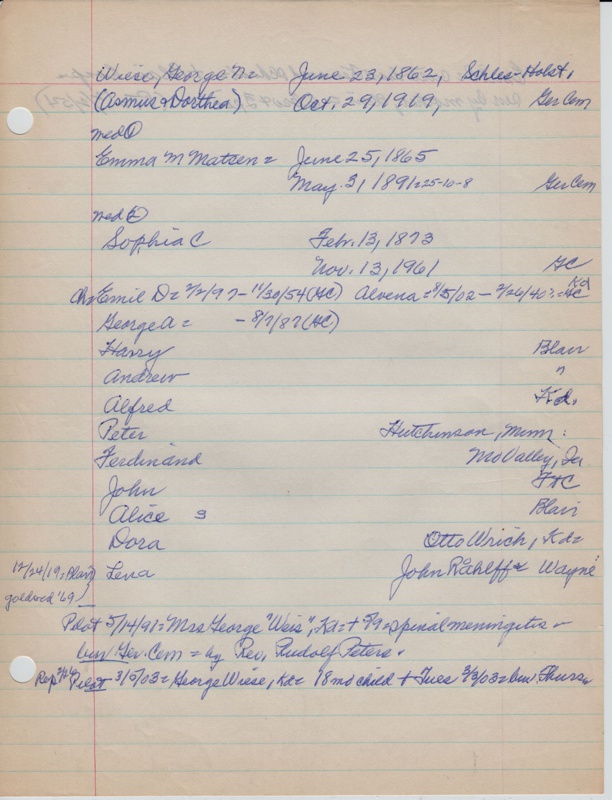 Wiese, George N = June 23, 1862, Schles-Holst,
(Asmus & Dorthea) Oct. 29, 1919, Ger Cem
med ①
Emma M Matzen = June 25, 1865
May. 3, 1891 = 25-10-8 Ger Cem
med ②
Sophia C Feb. 13, 1873
Nov. 13, 1961 GC
Ch = Emil D = 2/2/97 - 11/30/54 (GC) Alvena = 8/5/02 - 2/26/40 = GC Kd
George A = - 8/7/87 (GC)
Harry Blair
Andrew "
Alfred Kd.
Peter Hutchinson, Minn.
Ferdinand Mo Valley, Ia
John
Alice 3 Blair
Dora Otto Wrich, Kd =
12/24/19 = Blair Lena John Rahlff & Wayne
goldwed '69
Pilot 5/14/91 = Mrs George "Weis", Kd = + 5/9 = spinal meningitis -
bur Ger. Cem = by Rev. Rudolf Peters.
Rep Pilot 3/5/03 = George Wiese, Kd = 18 mo child + Tues 3/3/03 = bur. Thurs.